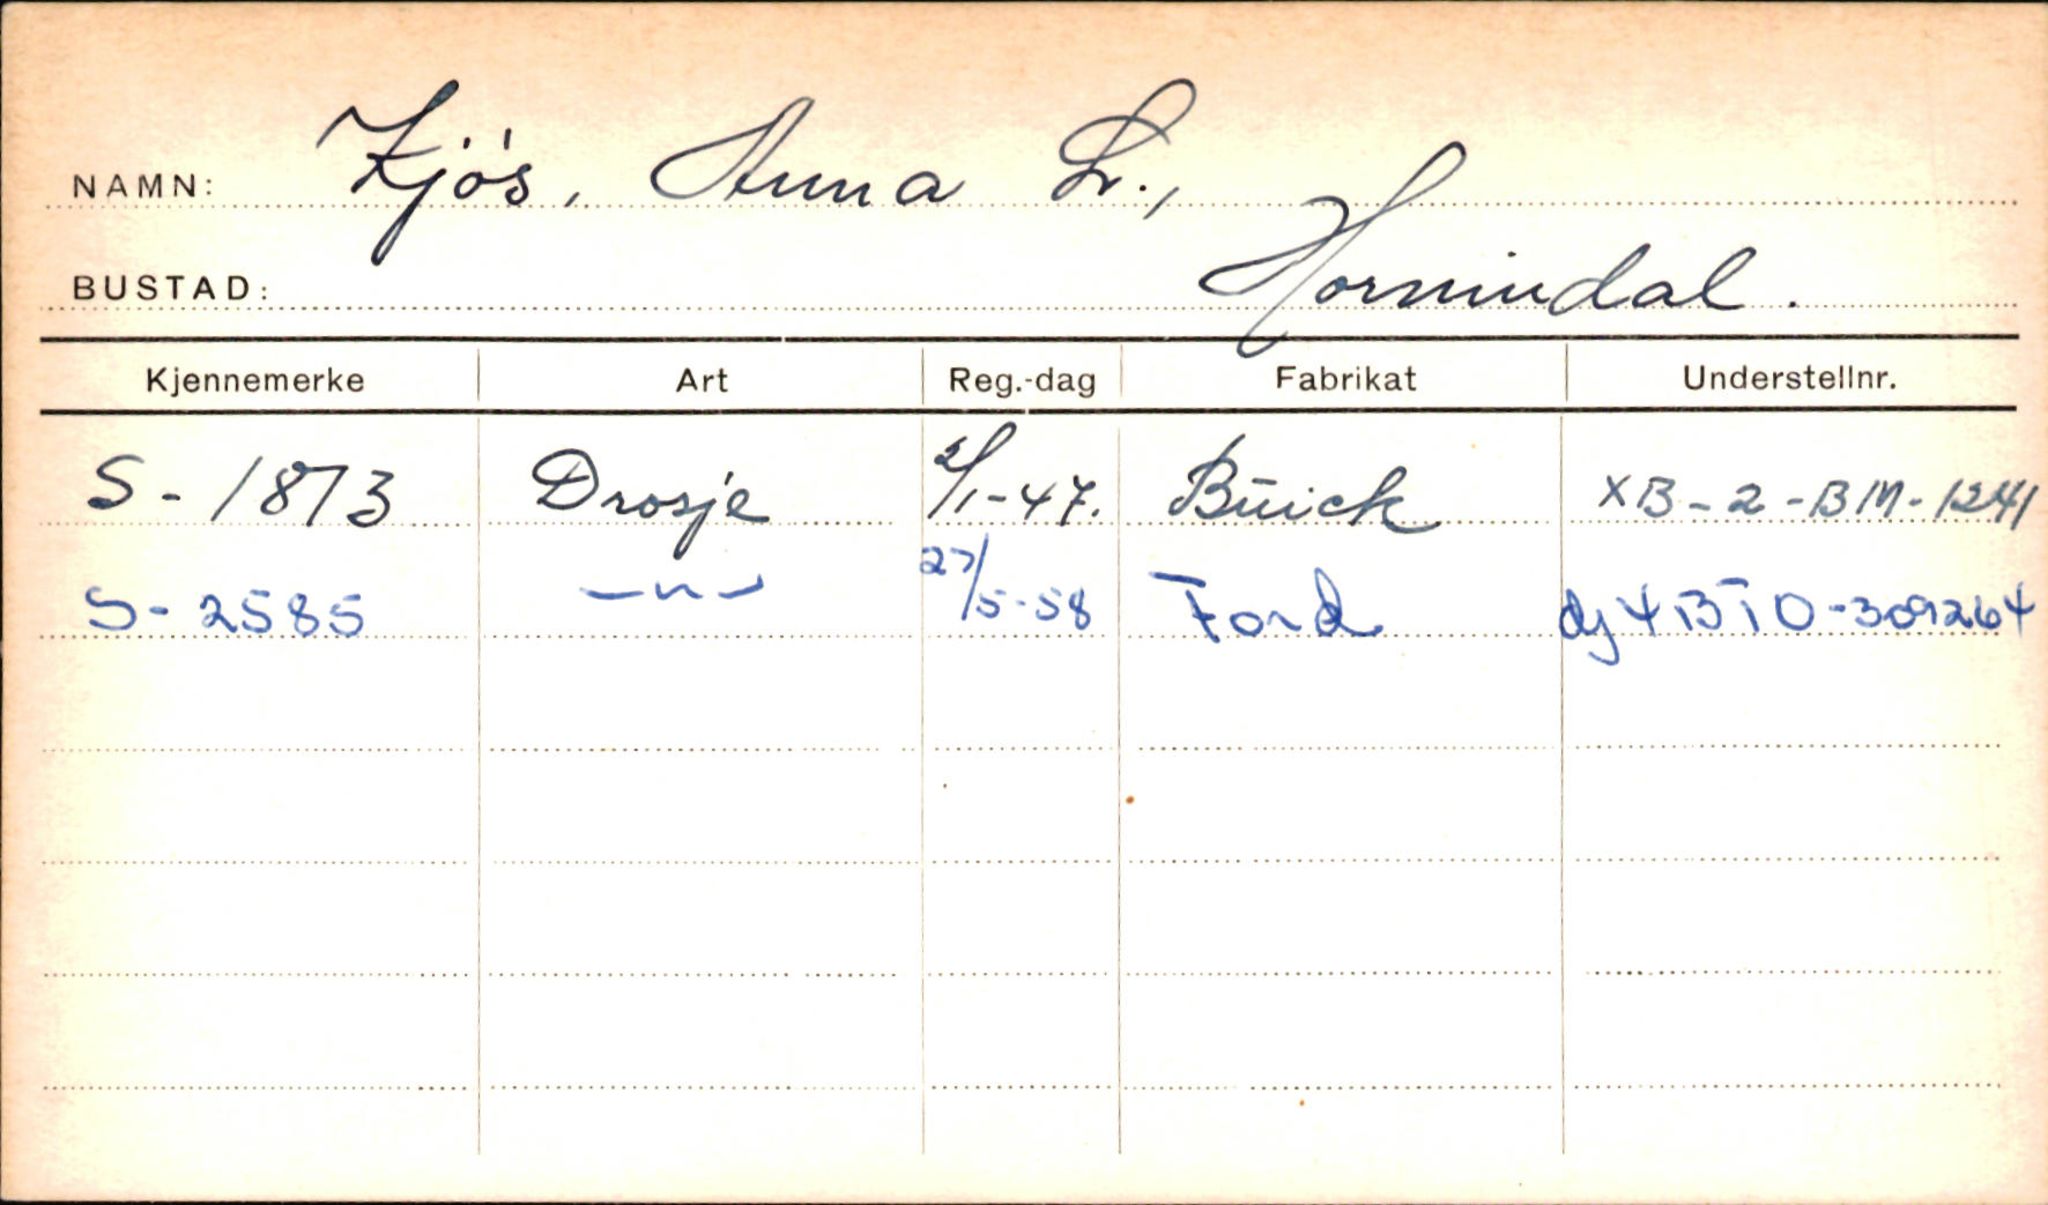 NAMN: Kjós, Anna Lr.,
BUSTAD: Hornindal.
Kjennemerke Art Reg.-dag Fabrikat Understellnr.
S - 1873 Drosje 2/1-47. Buick XB - 2 - BM - 1241
S - 2585 —"— 27/5-58 Ford dj 4 BTO - 309264